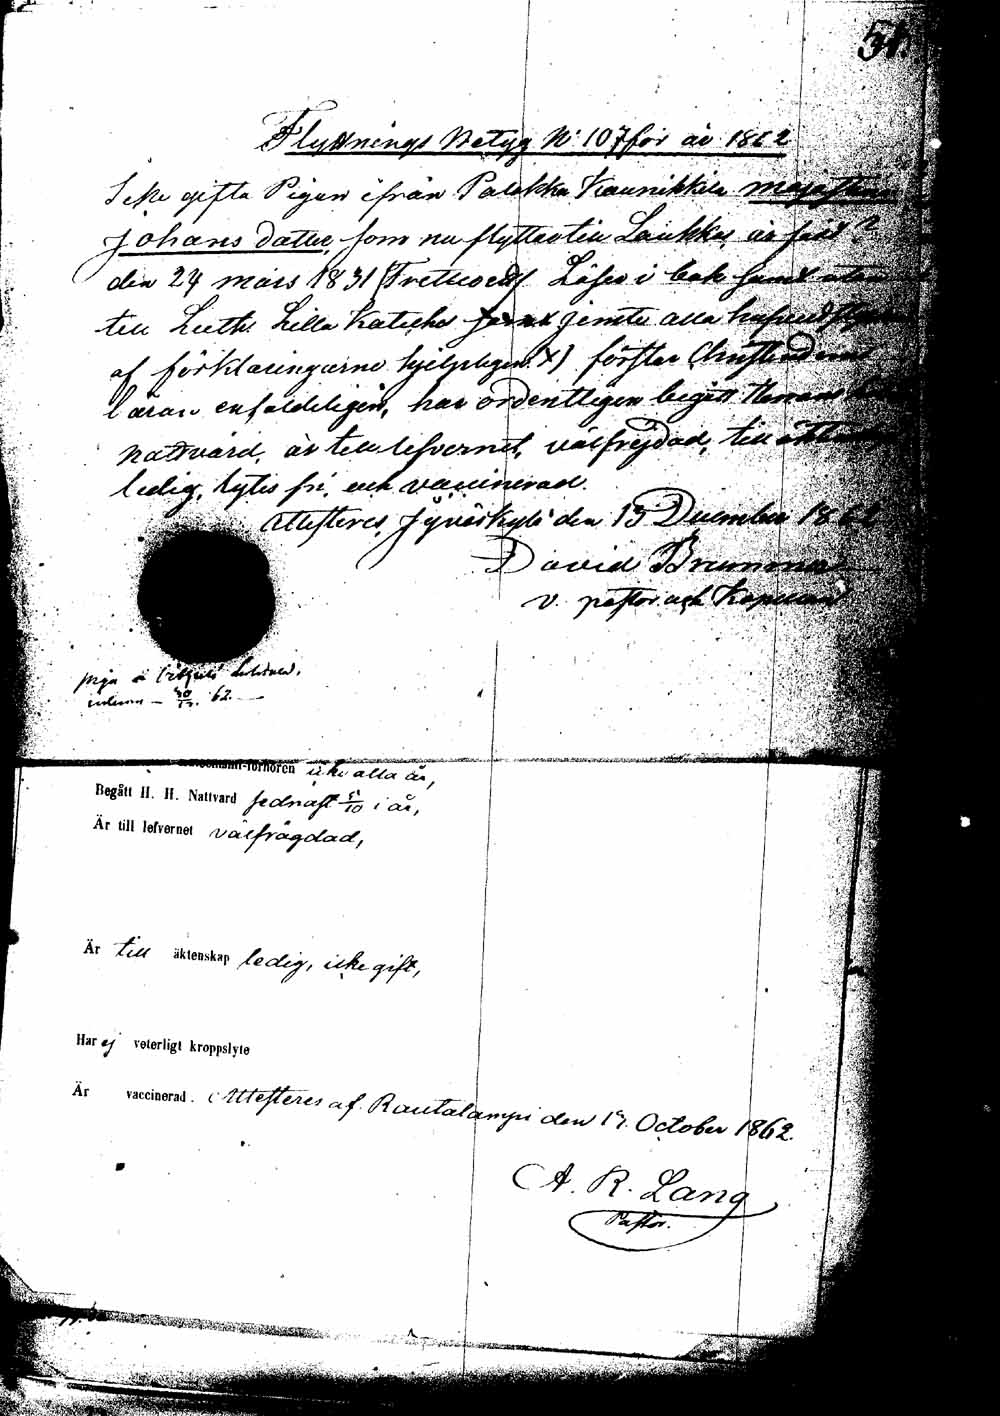 Flyttnings Betyg No 107 för år 1862
Icke gifta Pigan ifrån Palokka Kaunikkila
Johans dotter, som nu flyttar till Laukka, är född
den 24 mars 1831 (Trettioett) Läser i bok samt utan
till Luth: Lilla Kateches jemte alla
af förklaringarne hjelpligen. X) förstår Christendoms
läran enfaldeligen, har ordentligen begått Herrans
nattvard, är till lefvernet, välfrejdad, till
ledig, lytes fri, och vaccinerad.
Attesteres, Jyväskylä den 15 December 1862
David Brummer
v. pastor och Kapellan
piga
62.
förhören icke alla år,
Begått H. H. Nattvard sednast 5/10 i år,
Är till lefvernet välfrägdad,
Är till äktenskap ledig, icke gift,
Har ej veterligt kroppslyte
Är vaccinerad. Attesteres af. Rautalampi den 17. October 1862.
A. R. Lang
Pastor.